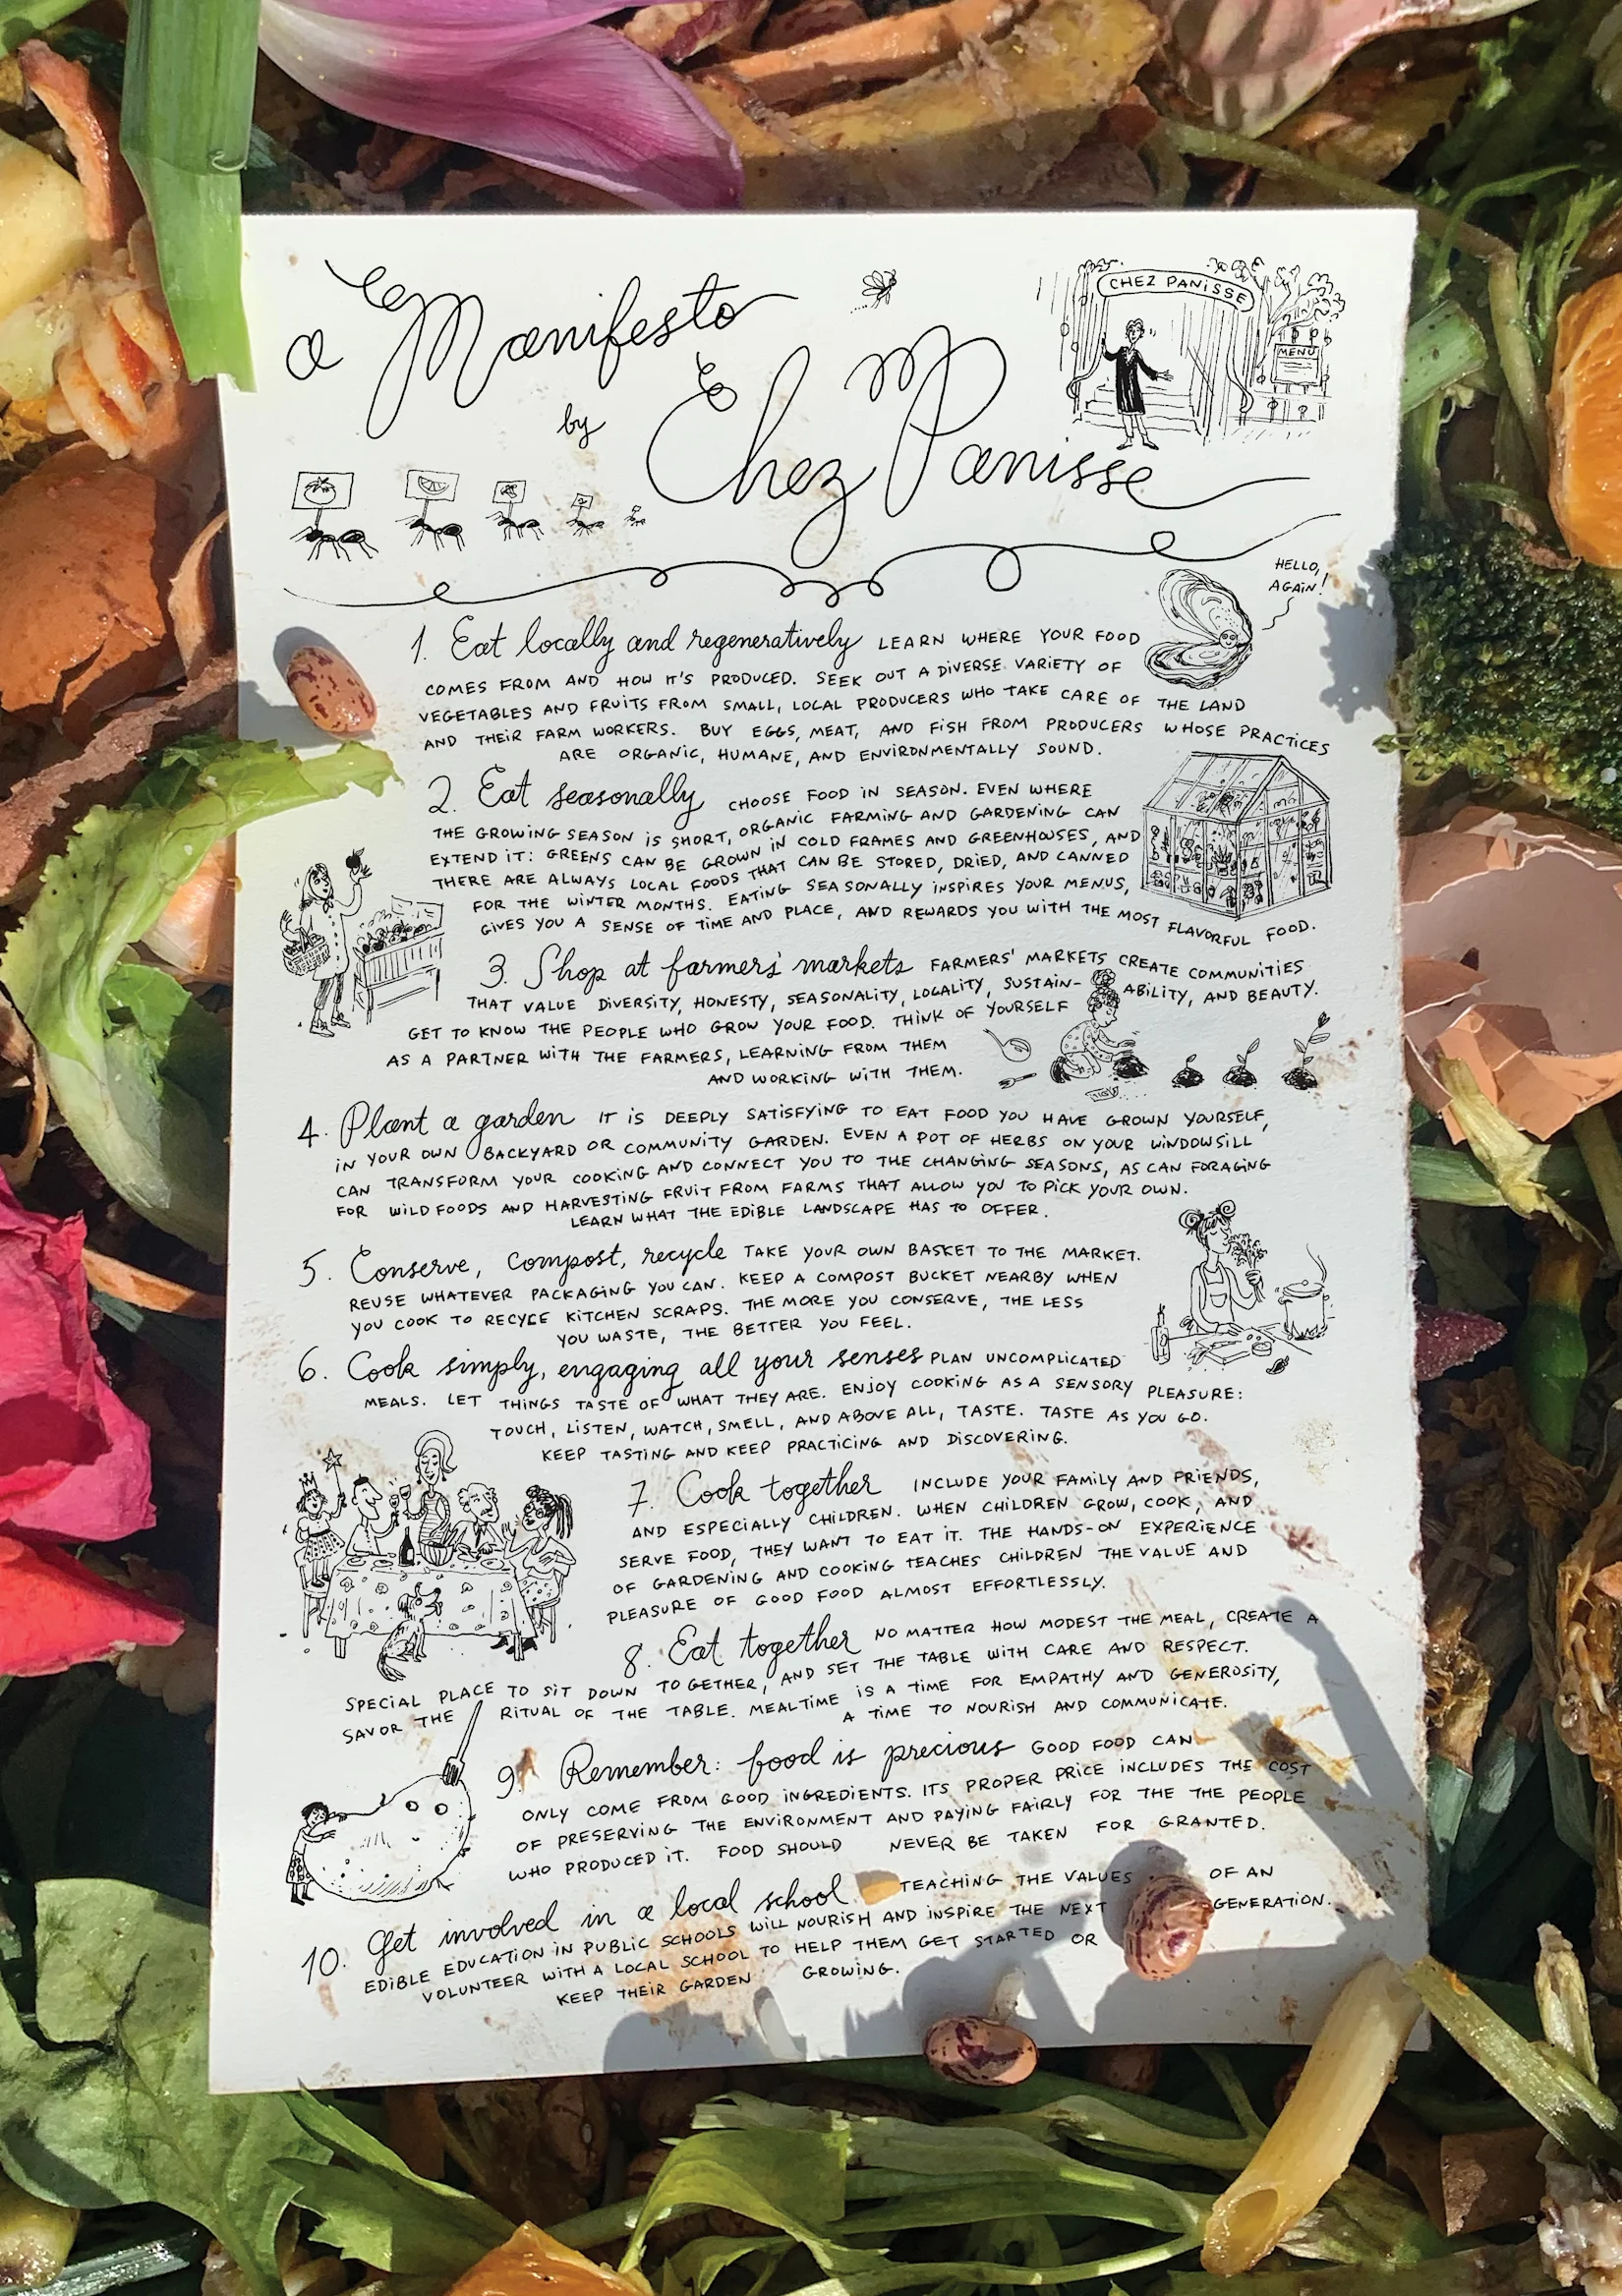 a Manifesto
by
Chez Panisse
CHEZ PANISSE
MENU
HELLO,
AGAIN!
1. Eat locally and regeneratively LEARN WHERE YOUR FOOD
COMES FROM AND HOW IT'S PRODUCED. SEEK OUT A DIVERSE VARIETY OF
VEGETABLES AND FRUITS FROM SMALL, LOCAL PRODUCERS WHO TAKE CARE OF THE LAND
AND THEIR FARM WORKERS. BUY EGGS, MEAT, AND FISH FROM PRODUCERS WHOSE PRACTICES
ARE ORGANIC, HUMANE, AND ENVIRONMENTALLY SOUND.
2. Eat seasonally CHOOSE FOOD IN SEASON. EVEN WHERE
THE GROWING SEASON IS SHORT, ORGANIC FARMING AND GARDENING CAN
EXTEND IT: GREENS CAN BE GROWN IN COLD FRAMES AND GREENHOUSES, AND
THERE ARE ALWAYS LOCAL FOODS THAT CAN BE STORED, DRIED, AND CANNED
FOR THE WINTER MONTHS. EATING SEASONALLY INSPIRES YOUR MENUS,
GIVES YOU A SENSE OF TIME AND PLACE, AND REWARDS YOU WITH THE MOST FLAVORFUL FOOD.
3. Shop at farmers' markets FARMERS' MARKETS CREATE COMMUNITIES
THAT VALUE DIVERSITY, HONESTY, SEASONALITY, LOCALITY, SUSTAIN-ABILITY, AND BEAUTY.
GET TO KNOW THE PEOPLE WHO GROW YOUR FOOD. THINK OF YOURSELF
AS A PARTNER WITH THE FARMERS, LEARNING FROM THEM
AND WORKING WITH THEM.
4. Plant a garden IT IS DEEPLY SATISFYING TO EAT FOOD YOU HAVE GROWN YOURSELF,
IN YOUR OWN BACKYARD OR COMMUNITY GARDEN. EVEN A POT OF HERBS ON YOUR WINDOWSILL
CAN TRANSFORM YOUR COOKING AND CONNECT YOU TO THE CHANGING SEASONS, AS CAN FORAGING
FOR WILD FOODS AND HARVESTING FRUIT FROM FARMS THAT ALLOW YOU TO PICK YOUR OWN.
LEARN WHAT THE EDIBLE LANDSCAPE HAS TO OFFER.
5. Conserve, compost, recycle TAKE YOUR OWN BASKET TO THE MARKET.
REUSE WHATEVER PACKAGING YOU CAN. KEEP A COMPOST BUCKET NEARBY WHEN
YOU COOK TO RECYCLE KITCHEN SCRAPS. THE MORE YOU CONSERVE, THE LESS
YOU WASTE, THE BETTER YOU FEEL.
6. Cook simply, engaging all your senses PLAN UNCOMPLICATED
MEALS. LET THINGS TASTE OF WHAT THEY ARE. ENJOY COOKING AS A SENSORY PLEASURE:
TOUCH, LISTEN, WATCH, SMELL, AND ABOVE ALL, TASTE. TASTE AS YOU GO.
KEEP TASTING AND KEEP PRACTICING AND DISCOVERING.
7. Cook together INCLUDE YOUR FAMILY AND FRIENDS,
AND ESPECIALLY CHILDREN. WHEN CHILDREN GROW, COOK, AND
SERVE FOOD, THEY WANT TO EAT IT. THE HANDS-ON EXPERIENCE
OF GARDENING AND COOKING TEACHES CHILDREN THE VALUE AND
PLEASURE OF GOOD FOOD ALMOST EFFORTLESSLY.
8. Eat together NO MATTER HOW MODEST THE MEAL, CREATE A
SPECIAL PLACE TO SIT DOWN TOGETHER, AND SET THE TABLE WITH CARE AND RESPECT.
SAVOR THE RITUAL OF THE TABLE. MEALTIME IS A TIME FOR EMPATHY AND GENEROSITY,
A TIME TO NOURISH AND COMMUNICATE.
9. Remember: food is precious GOOD FOOD CAN
ONLY COME FROM GOOD INGREDIENTS. ITS PROPER PRICE INCLUDES THE COST
OF PRESERVING THE ENVIRONMENT AND PAYING FAIRLY FOR THE THE PEOPLE
WHO PRODUCED IT. FOOD SHOULD NEVER BE TAKEN FOR GRANTED.
10. Get involved in a local school TEACHING THE VALUES OF AN
EDIBLE EDUCATION IN PUBLIC SCHOOLS WILL NOURISH AND INSPIRE THE NEXT GENERATION.
VOLUNTEER WITH A LOCAL SCHOOL TO HELP THEM GET STARTED OR
KEEP THEIR GARDEN GROWING.